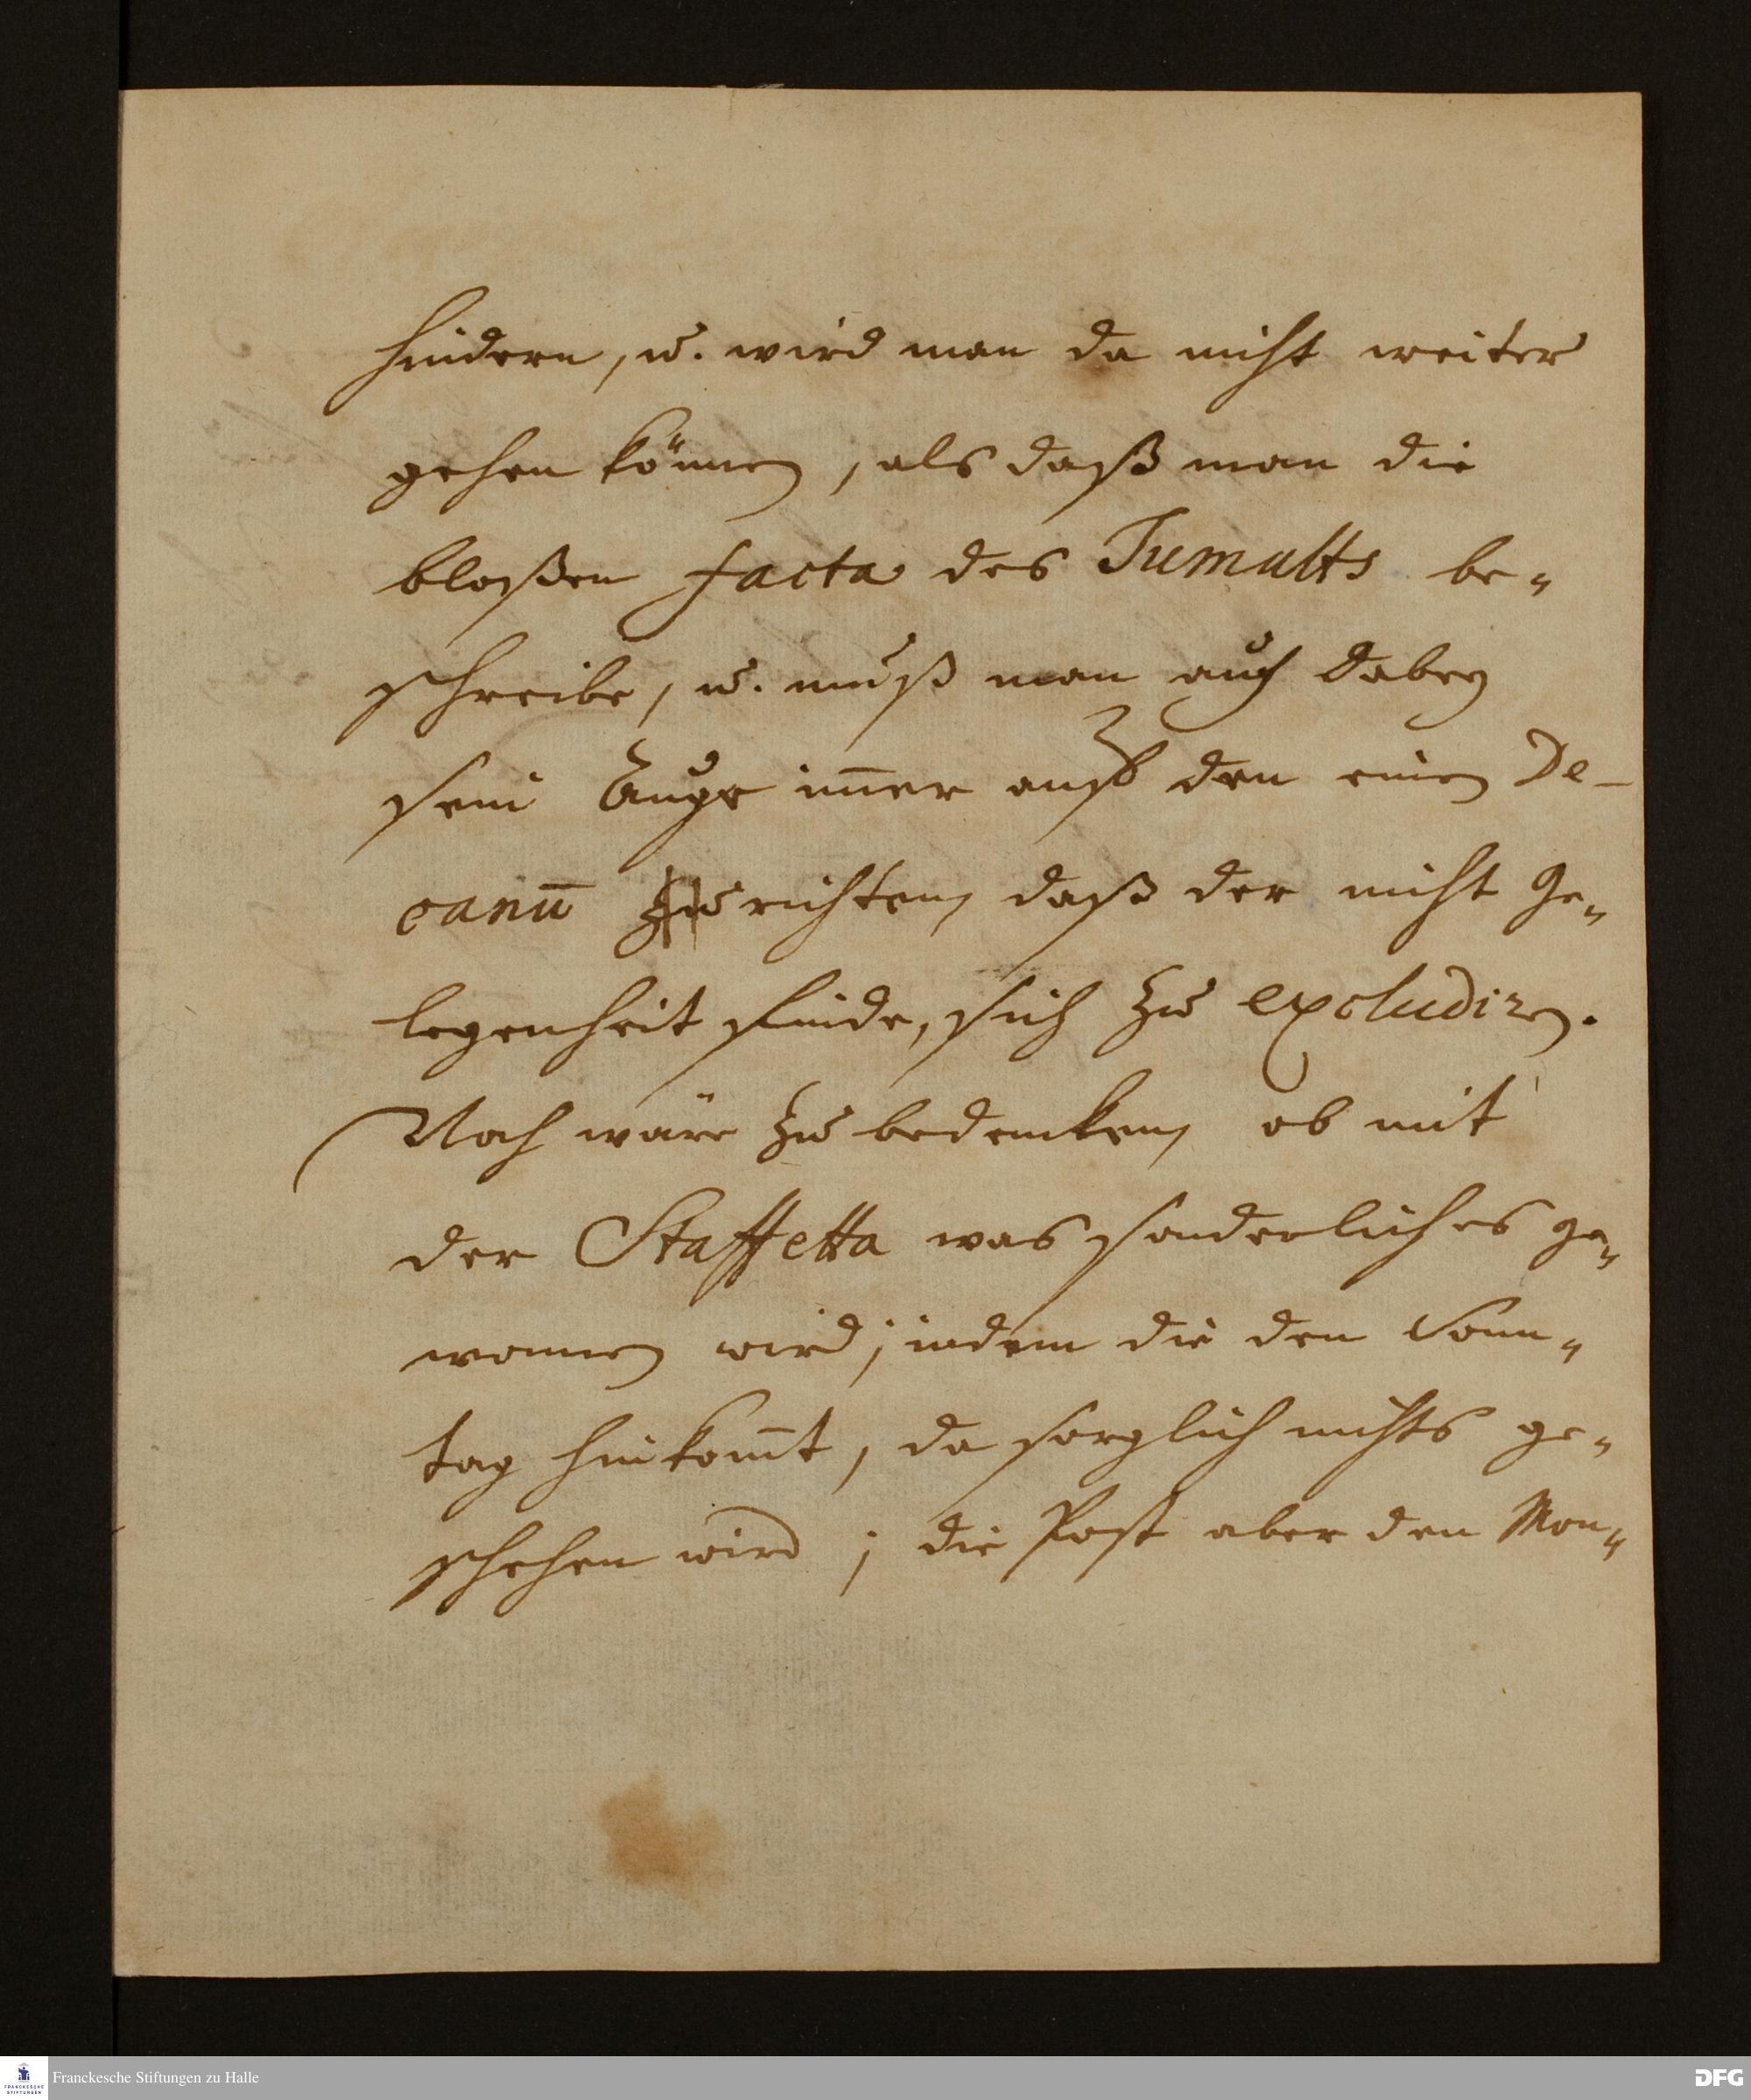 hindern, u. wird man da nicht weiter
gehen können, als daß man die
bloßen facta des Tumults be-
schreibe, u. muß man auch dabey
sein Auge im̅er auf den einen De-
canū zu richten, daß der nicht Ge-
legenheit finde, sich zu excludiren.
Noch wäre zu bedencken, ob mit
der Staffetta was sonderliches ge-
wonnen wird; indem die den Sonn-
tag hinkom̅t, da sorglich nichts ge-
schehen wird; die Post aber den Mon-
Franckesche Stiftungen zu Halle
DFG